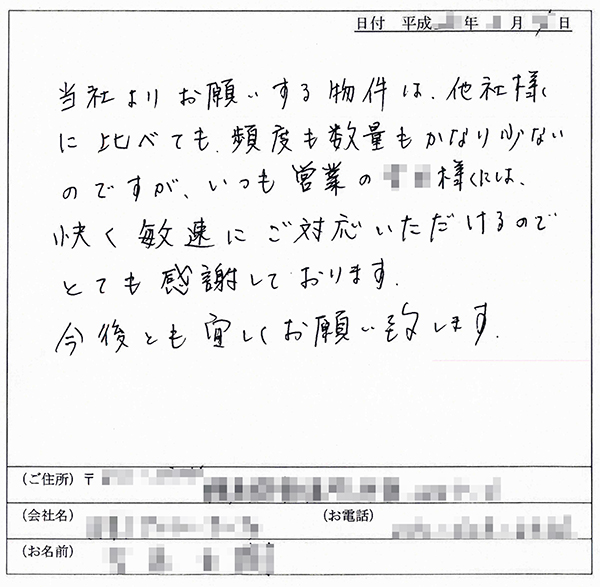 日付 平成 年 月 日
当社よりお願いする物件は、他社様
に比べても、頻度も数量もかなり少ない
のですが、いつも営業の 様には、
快く敏速にご対応いただけるので
とても感謝しております.
今後とも宜しくお願い致します.
(ご住所) 〒
(会社名) (お電話)
(お名前)